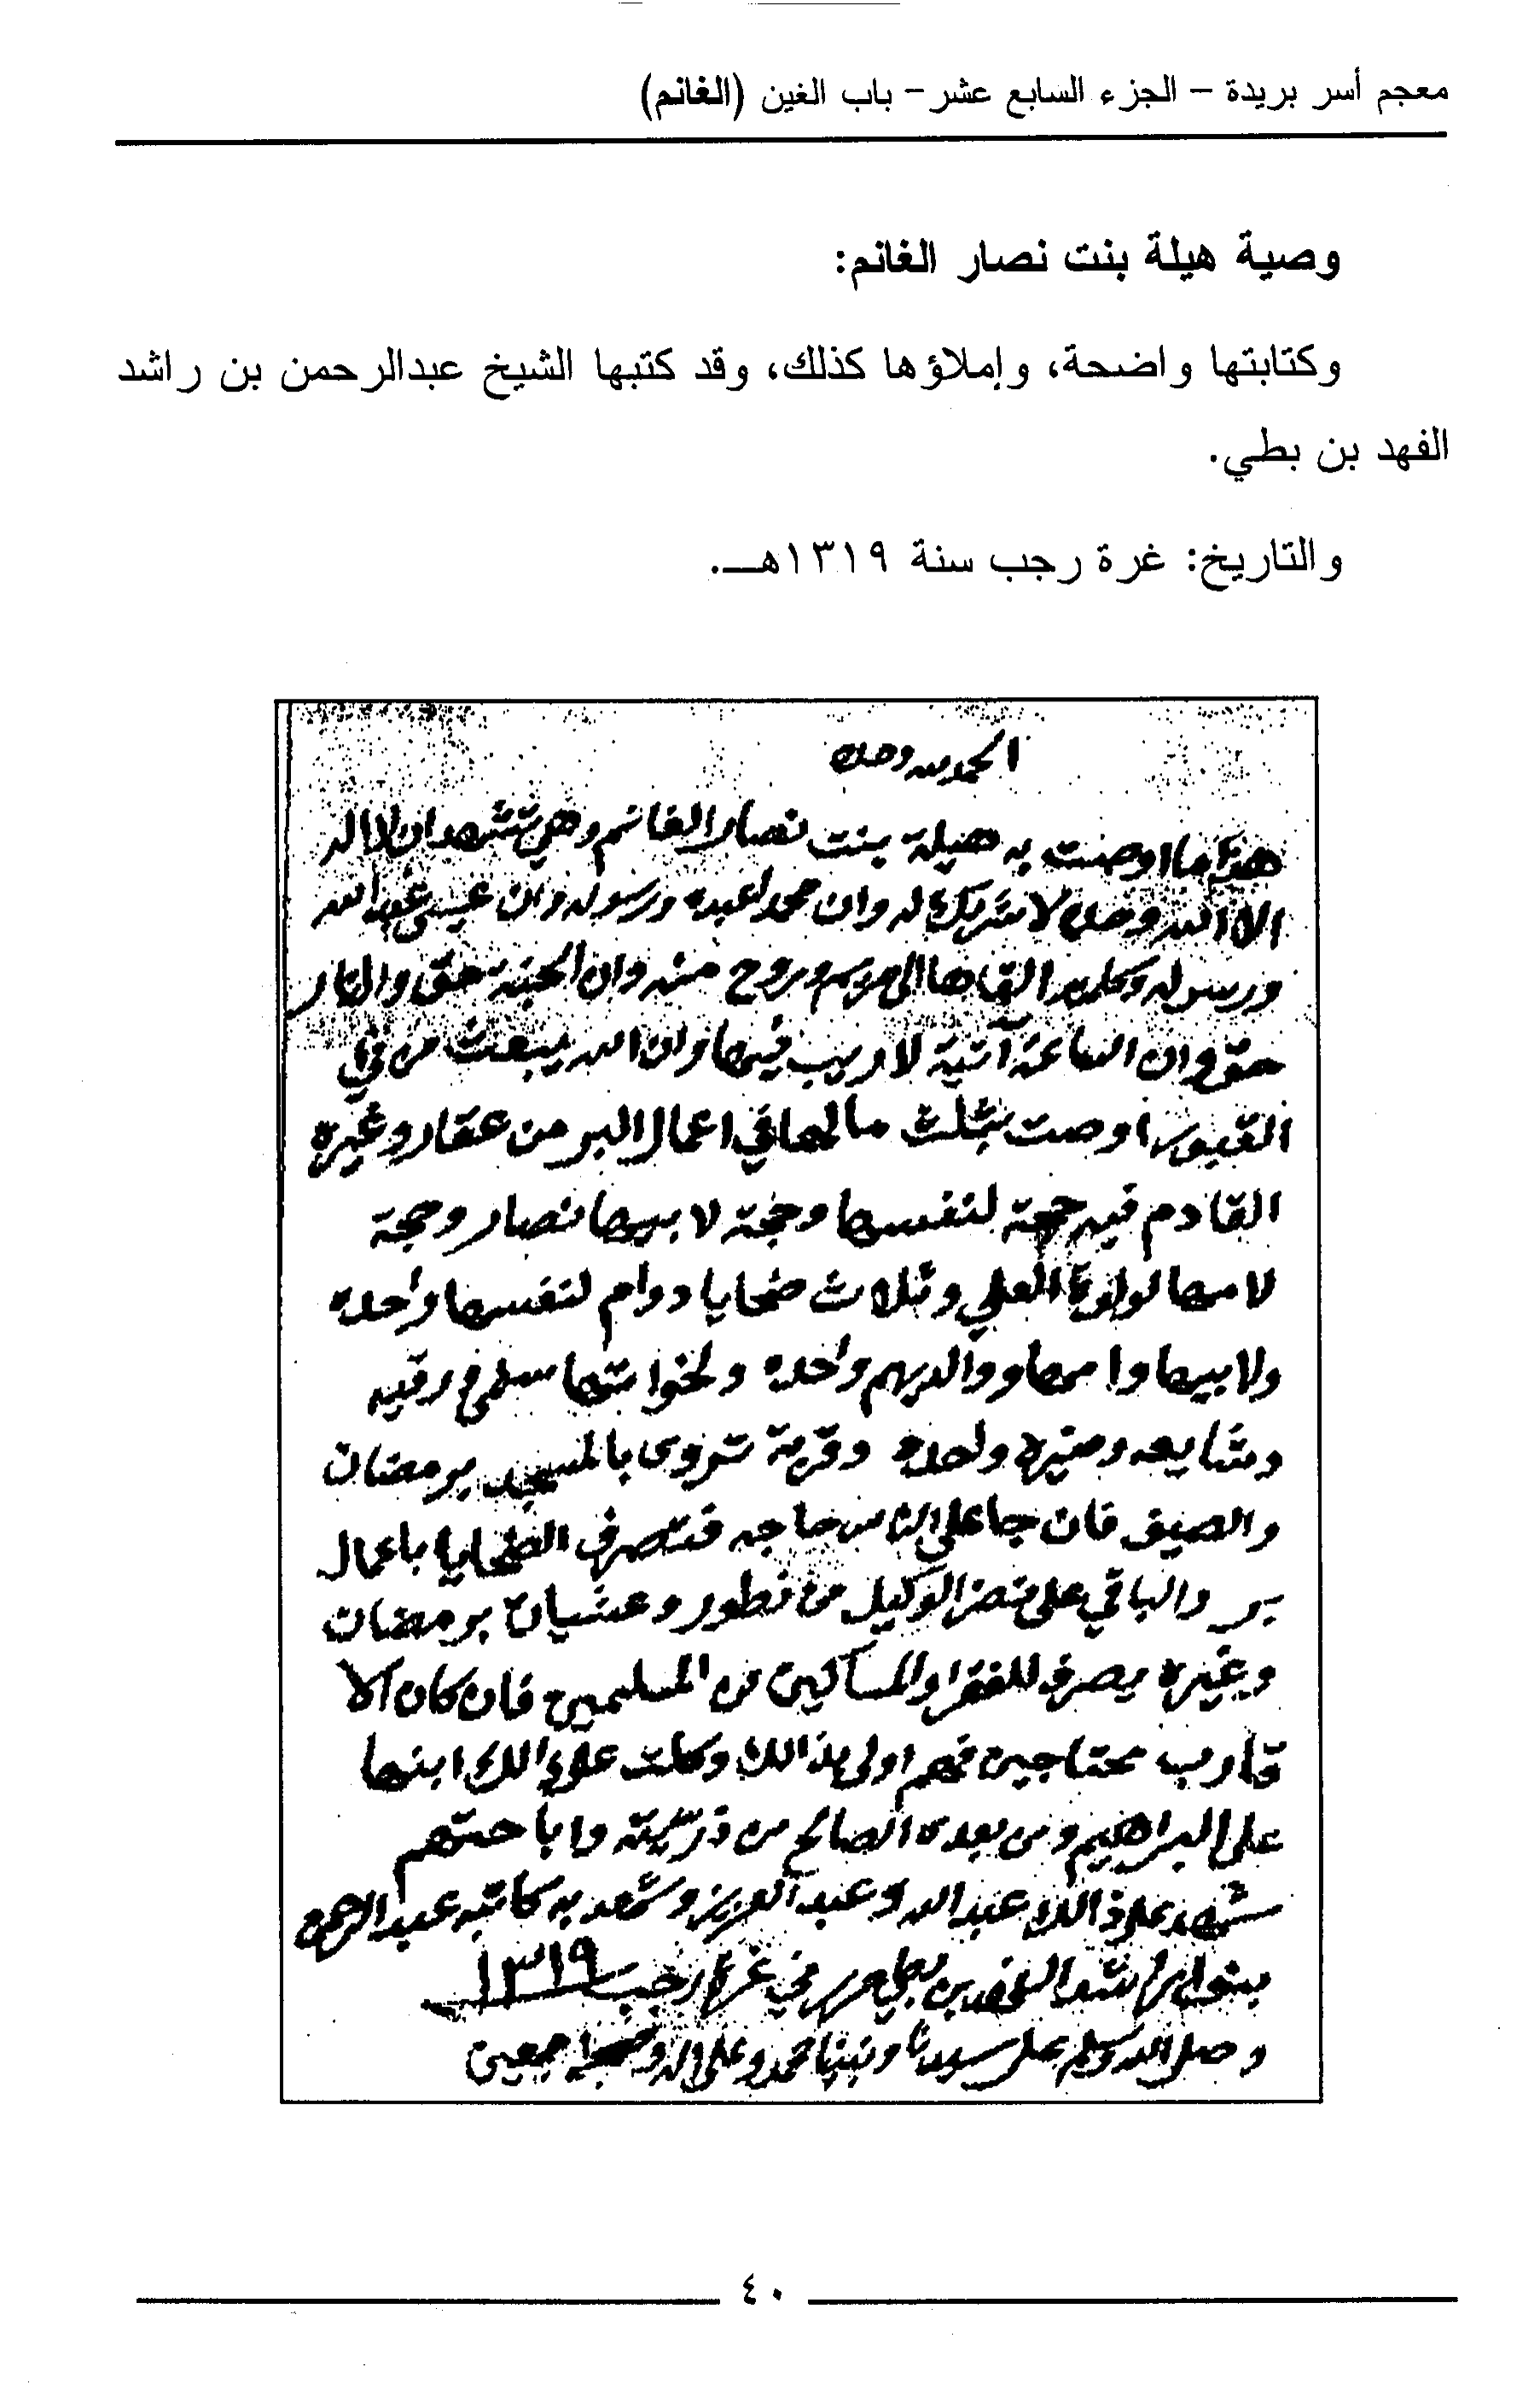 معجم أسر بريدة – الجزء السابع عشر – باب الغين (الغانم)
وصية هيلة بنت نصار الغانم:
وكتابتها واضحة، وإملاؤها كذلك، وقد كتبها الشيخ عبدالرحمن بن راشد
الفهد بن بطي.
والتاريخ: غرة رجب سنة ١٣١٩هـ.
الحمد لله وحده
هذا ما اوصت به هيلة بنت نصار الغانم وهي تشهد ان لا اله
الا الله وحده لا شريك له وان محمدا عبده ورسوله وان عيسى عبد الله
ورسوله وكلمته القاها الى مريم وروح منه وان الجنة حق والنار
حق وان الساعة آتية لا ريب فيها وان الله يبعث من في
القبور اوصت بثلث مالها في اعمال البر من عقار وغيره
القادم فيه حجة لنفسها وحجة لابيها نصار وحجة
لامها لولوة العلي وثلاث ضحايا دوام لنفسها واحده
ولابيها وامها ووالديهم واحده ولخواتها سلمى ورقيه
وشايعه ومنيره واحده وقربة تروى بالمسجد برمضان
والصيف فان جا على الناس حاجه فتصرف الضحايا باعمال
بر والباقي على نضر الوكيل من فطور وعشيات برمضان
وغيره يصرف للفقرا والمساكين من المسلمين فان كان الا
قارب محتاجين فهم اولى بذالك وكلت على ذالك ابنها
على البراهيم ومن بعده الصالح من ذريته واباحتهم
شهد على ذالك عبد الله وعبد العزيز وشهد به كاتبه عبد الرحمن
بن راشد الفهد بن بطي في غرة رجب ١٣١٩
وصلى الله وسلم على سيدنا ونبينا محمد وعلى اله وصحبه اجمعين
٤٠